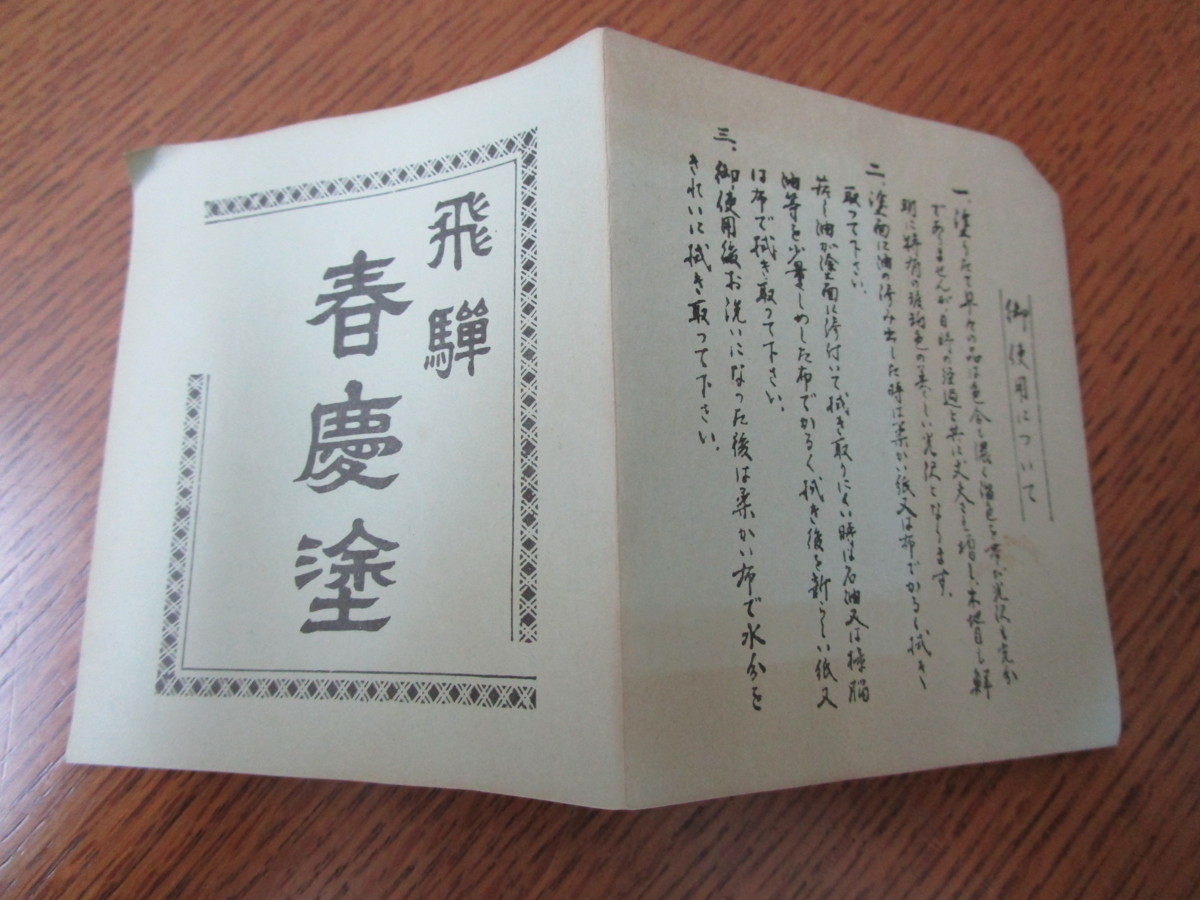 飛騨
春慶塗
御使用について
一、塗りたて早々の品は色合も濃く油色を帯び光沢も充分
でありませんが、日時の経過と共に丈夫さも増し、木地目も鮮
明に特有の琥珀色の美しい光沢となります。
二、塗面に油の滲み出した時は柔かい紙又は布でかるく拭き
取って下さい。
若し油が塗面に滲付いて拭き取りにくい時は石油又は樟脳
油等を少量しめした布でかるく拭き後を新らしい紙又
は布で拭き取って下さい。
三、御使用後お洗いになった後は柔かい布で水分を
きれいに拭き取って下さい。